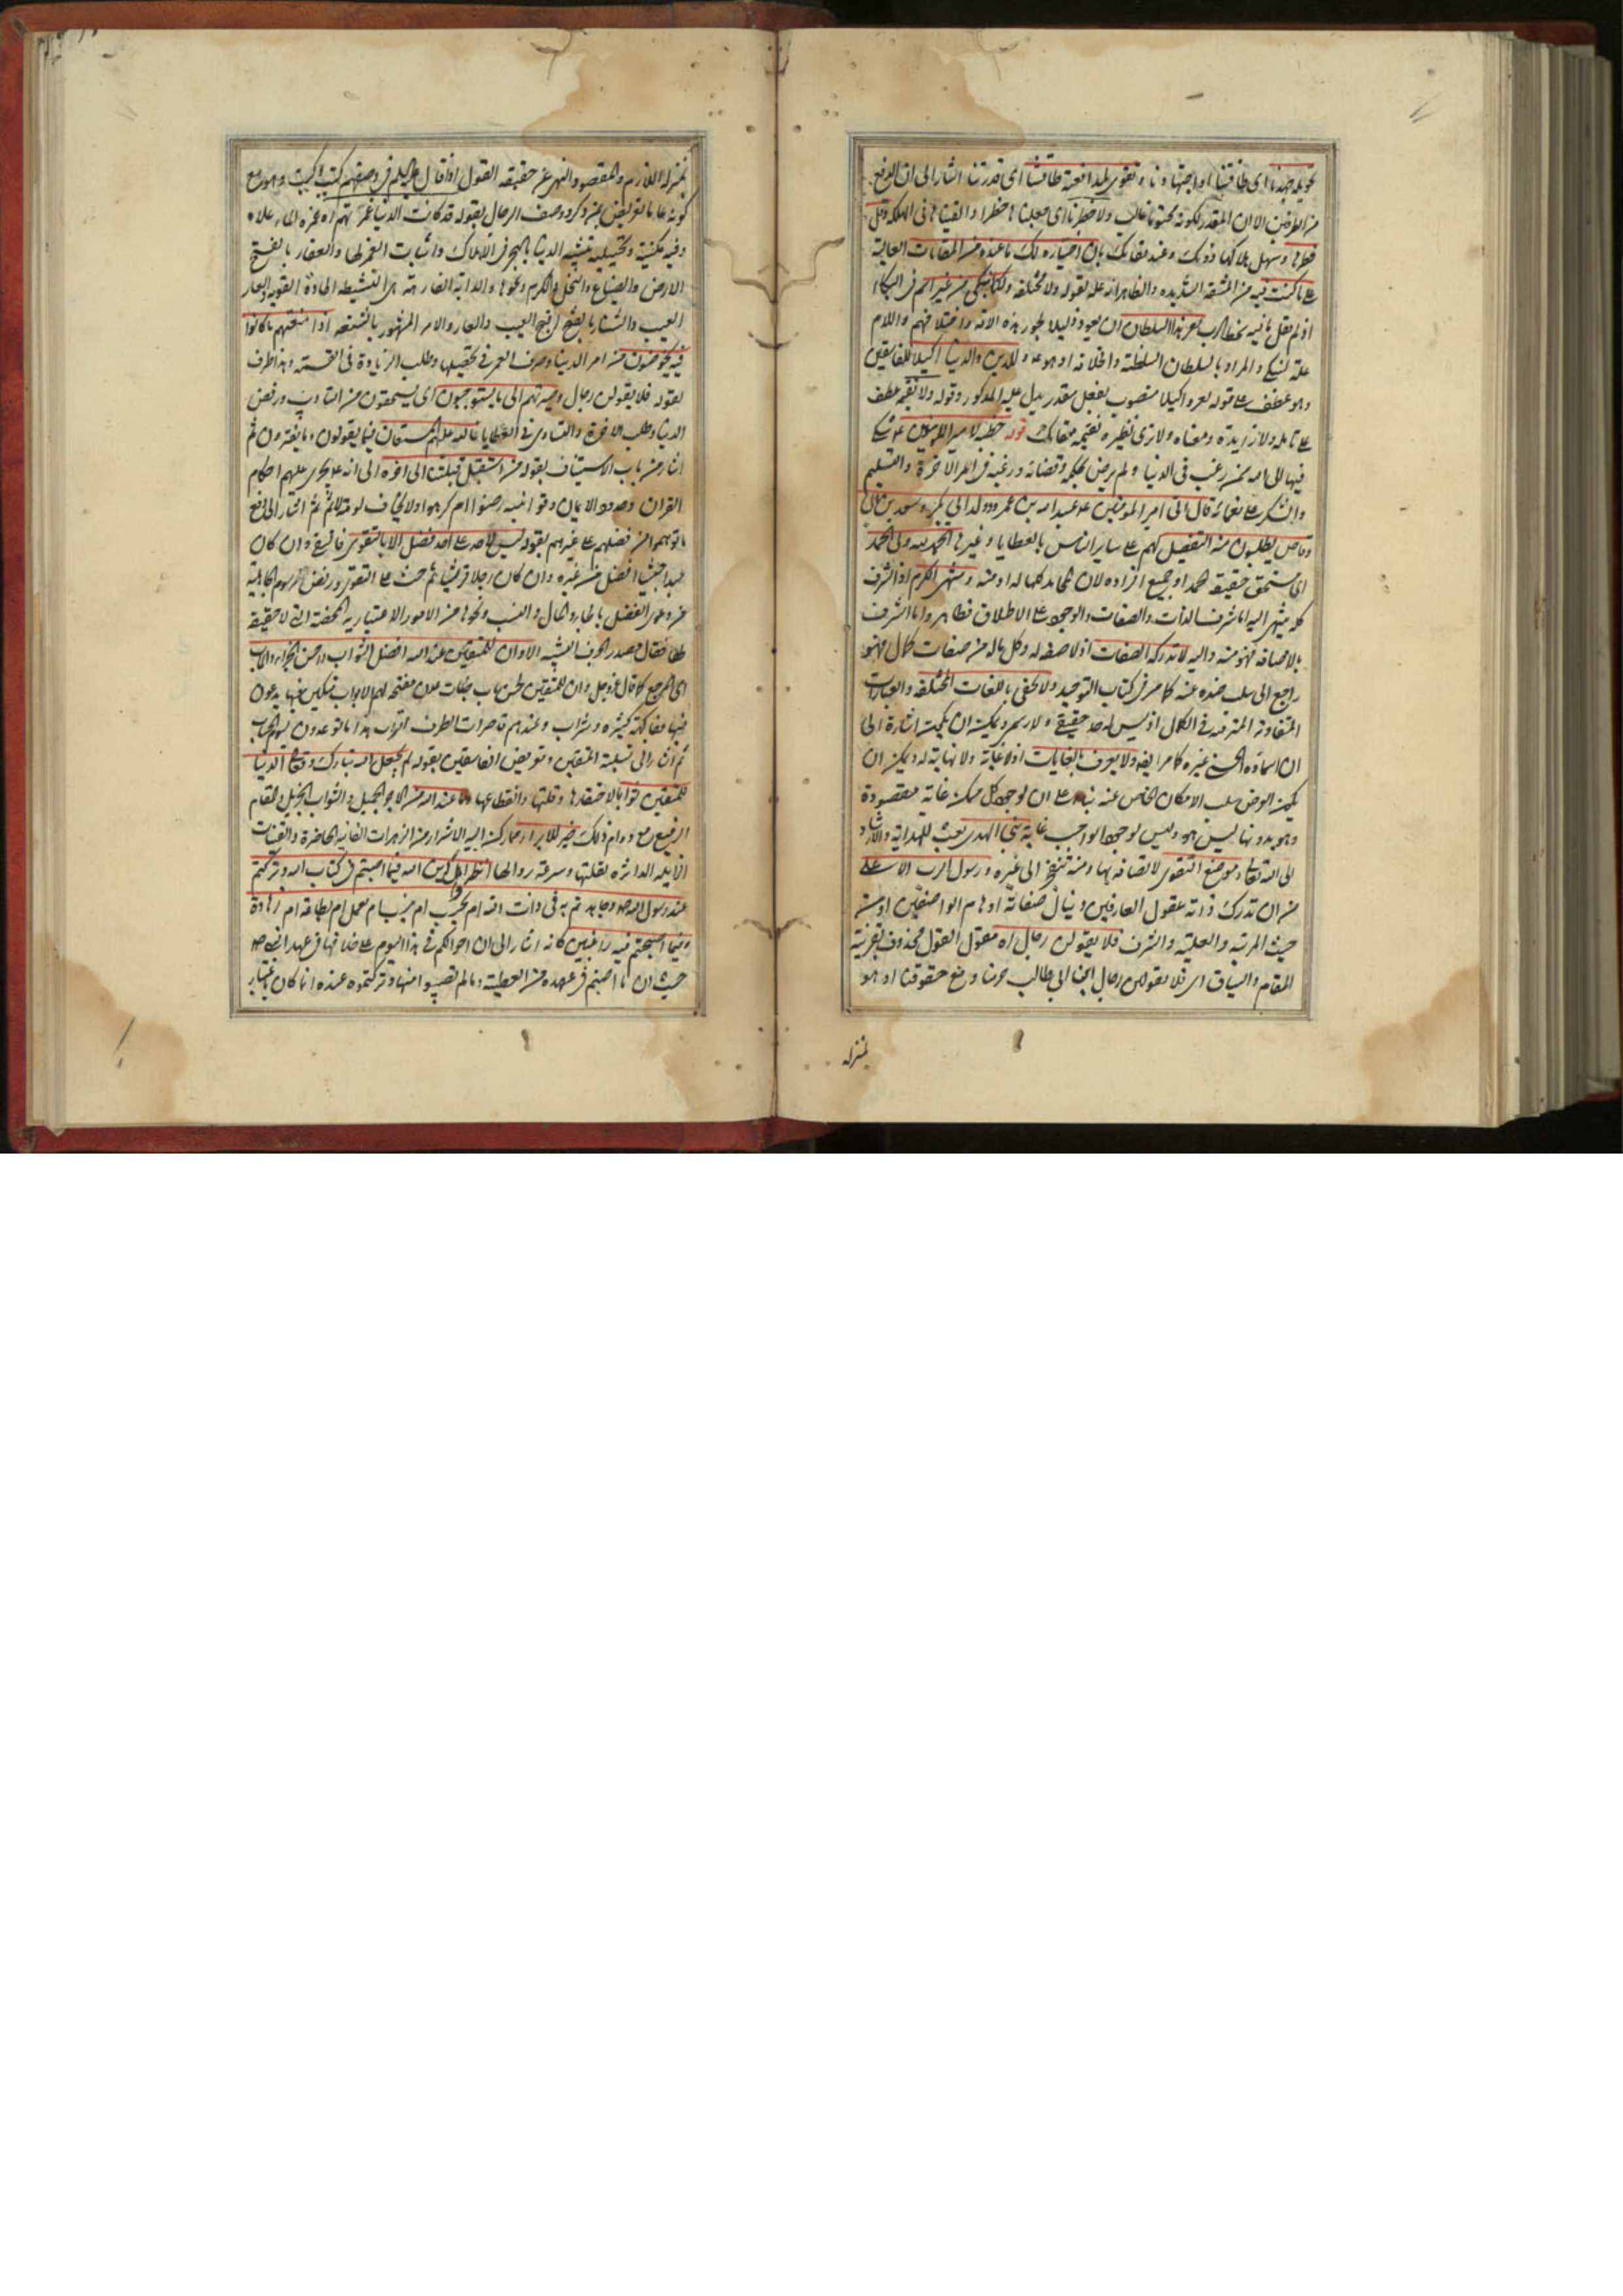 تحويله جهدنا اى طاقتنا او اجتهادنا وتقوى لمدافعته طاقتنا اى قدرتنا اشار الى ان الدفع
من الطرفين الا ان المقدر لكونه محتوما غالب ولا خطرنا اى جعلنا خطرا والقينا فى المهلكة وقل
خطرها وسهل هلاكها دونك وعند بقائك بان اختياره لك ما عنده من المقامات العالية
على ما كنت فيه من المشقة الشديدة والظاهر انه علة لقوله ولا مختلفة ولكنا نبكى من غير اثم فى البكاء
لعز هذا السلطان ان يعود ذليلا لجور هذه الامة واختلافهم واللام
علة لنبكى والمراد بالسلطان السلطنة والخلافة او هو ع وللدين والدنيا اكيلا للفاسقين
وهو عطف على قوله لعز واكيلا منصوب بفعل مقدر يدل عليه المذكور وقوله ولا نقيمه عطف
ولا نرى نظيره نقيمه مقامك قوله خطبة لامير المؤمنين ع شكى
فيها الى الله ممن رغب فى الدنيا ولم يرض بحكمه وقضائه ورغبه فى امر الاخرة والتسليم
والشكر على نعمائه قال اتى امير المؤمنين ع عبد الله بن عمر وولد ابى بكر وسعد بن ابى
وقاص يطلبون منه التفضيل لهم على ساير الناس بالعطايا وغيرها الحمد لله ولى الحمد
اى مستحق حقيقة الحمد او جميع افراده لان المحامد كلها له او منه ومنتهى الكرم اذ الشرف
كله ينتهى اليه اما شرف الذات والصفات والوجود على الاطلاق فظاهر واما الشرف
بالاضافة فهو منه واليه لا تدركه الصفات اذ لا صفة له وكل ماله من صفات كمال فهو
راجع الى سلب ضده عنه كما مر فى كتاب التوحيد ولا يحد باللغات المختلفة والعبارات
المتفاوتة المترقية فى الكمال اذ ليس له حد حقيقى ولا رسم ويمكن ان يكون اشارة الى
ان اسماءه الحسنى غيره كما مر ايضا ولا يعرف بالغايات اذ لا غاية ولا نهاية له ويمكن ان
يكون الغرض سلب الامكان الخاص عنه بناء على ان لوجود كل ممكن غاية مقصودة
وهو بدونها ليس هو وليس لوجود الواجب غاية نبى الهدى بعث للهداية والارشاد
الى الله تعالى وموضع التقوى لاتصافه بها ومنه تنتهى الى غيره ورسول الرب الاعلى
من ان تدرك ذاته عقول العارفين وينال صفاته اوهام الواصفين او من
حيث المرتبة والعلية والشرف فلا يقولن رجال اه مقول القول محذوف بقرينة
المقام والسياق اى فلا يقولن رجال ابن ابى طالب حرمنا ومنع حقوقنا او هو
بمنزله
بمنزلة اللازم والمقصود النهى عن حقيقة القول
كونه عاما تعريض بمن ذكر ووصف الرجال بقوله قد كانت الدنيا غمرتهم اه غمره الماء علاه
وفيه مكنية وتخييلية بتشبيه الدنيا بالبحر فى الاهلاك واثبات الغمر لها والعقار بالفتح
الارض والضياع والنخل والكرم ونحوها والدابة الفارهة هى النشيطة الحادة القوية والعار
العيب والشنار بالفتح اقبح العيب والعار والامر المشهور بالشنعة اذا منعتهم ما كانوا
فيه يخوضون من امر الدنيا وصرف العمر فى تحصيلها وطلب الزيادة فى القسمة وهذا ظرف
لقوله فلا يقولن رجال وصيرتهم الى ما يستوجبون اى يستحقون من التأديب ورفض
الدنيا وطلب الاخرة والتساوى فى العطايا فالله عليهم المستعان فيما يقولون وما يفترون ثم
اشار من باب الاستيناف بقوله من استقبل قبلتنا الى اخره الى انه ع يجرى عليهم احكام
القران وحدود الايمان وقوانينه رضوا ام كرهوا ولا يخاف لومة لائم ثم اشار الى دفع
ما توهموا من فضلهم على غيرهم بقوله ليس لاحد على احد فضل الا بالتقوى وان كان
عبدا حبشيا افضل من غيره وان كان رجلا قرشيا ثم حث على التقوى ورفض رسوم الجاهلية
من دعوى الفضل بالجاه والمال والنسب ونحوها من الامور الاعتبارية المحضة التى لا حقيقة
لها فقال مصدرا بحرف التنبيه الا وان للمتقين عند الله افضل الثواب واحسن الجزاء والماب
اى المرجع كما قال عز وجل وان للمتقين لحسن ماب جنات عدن مفتحة لهم الابواب متكئين فيها يدعون
فيها بفاكهة كثيرة وشراب وعندهم قاصرات الطرف اتراب هذا ما توعدون ليوم الحساب
ثم اشار الى تسلية المتقين وتعريض الفاسقين بقوله لم يجعل الله تبارك وتعالى الدنيا
للمتقين ثوابا لاحتقارها وقلتها وانقطاعها وما عند الله من الاجر الجميل والثواب الجزيل والمقام
الرفيع مع دوام ذلك خير للابرار مما ركن اليه الاشرار من الزهرات الفانية الحاضرة والقنيات
الزايلة الداثرة لقلتها وسرعة زوالها انظروا اهل دين الله فيما اصبتم فى كتاب الله وتركتم
عند رسول الله ص وجاهدتم به فى ذات الله ام بحسب ام بنسب ام بعمل ام بطاعة ام زهادة
وفيما اصبحتم فيه راغبين كانه اشار الى ان احوالكم فى هذا اليوم على خلافها فى عهد النبى ص
حيث ان ما اصبتم فى عهده من العطية وما لم تصيبوا منها وتركتموه عنده انما كان باعتبار